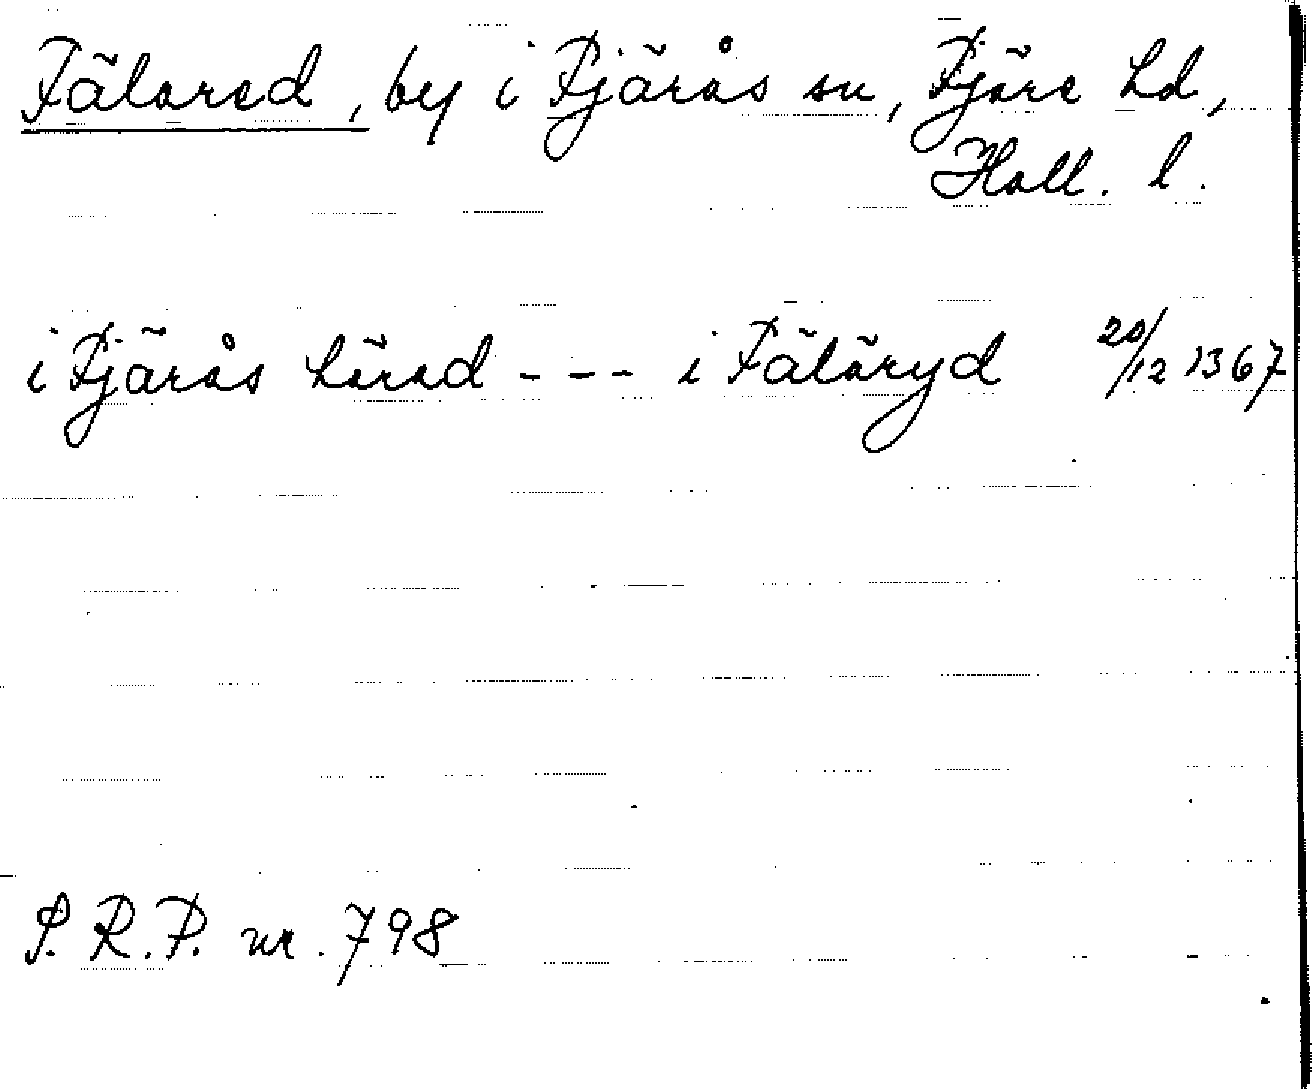 Fälared, by i Fjärås sn, Fjäre hd,
Hall. l.
i Fjärås härad --- i Fäläryd 20/12 1367
S. R. P. nr. 798